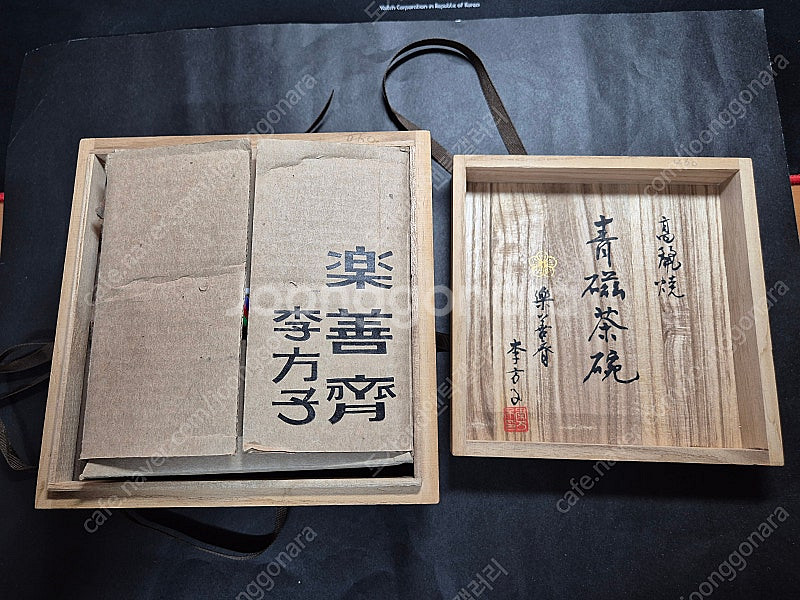 Corporation in Republic of Korea
楽善齊
李方子
高麗焼
青磁茶碗
楽善斉
李方子
joonggonara
cafe.naver.com/joonggonara